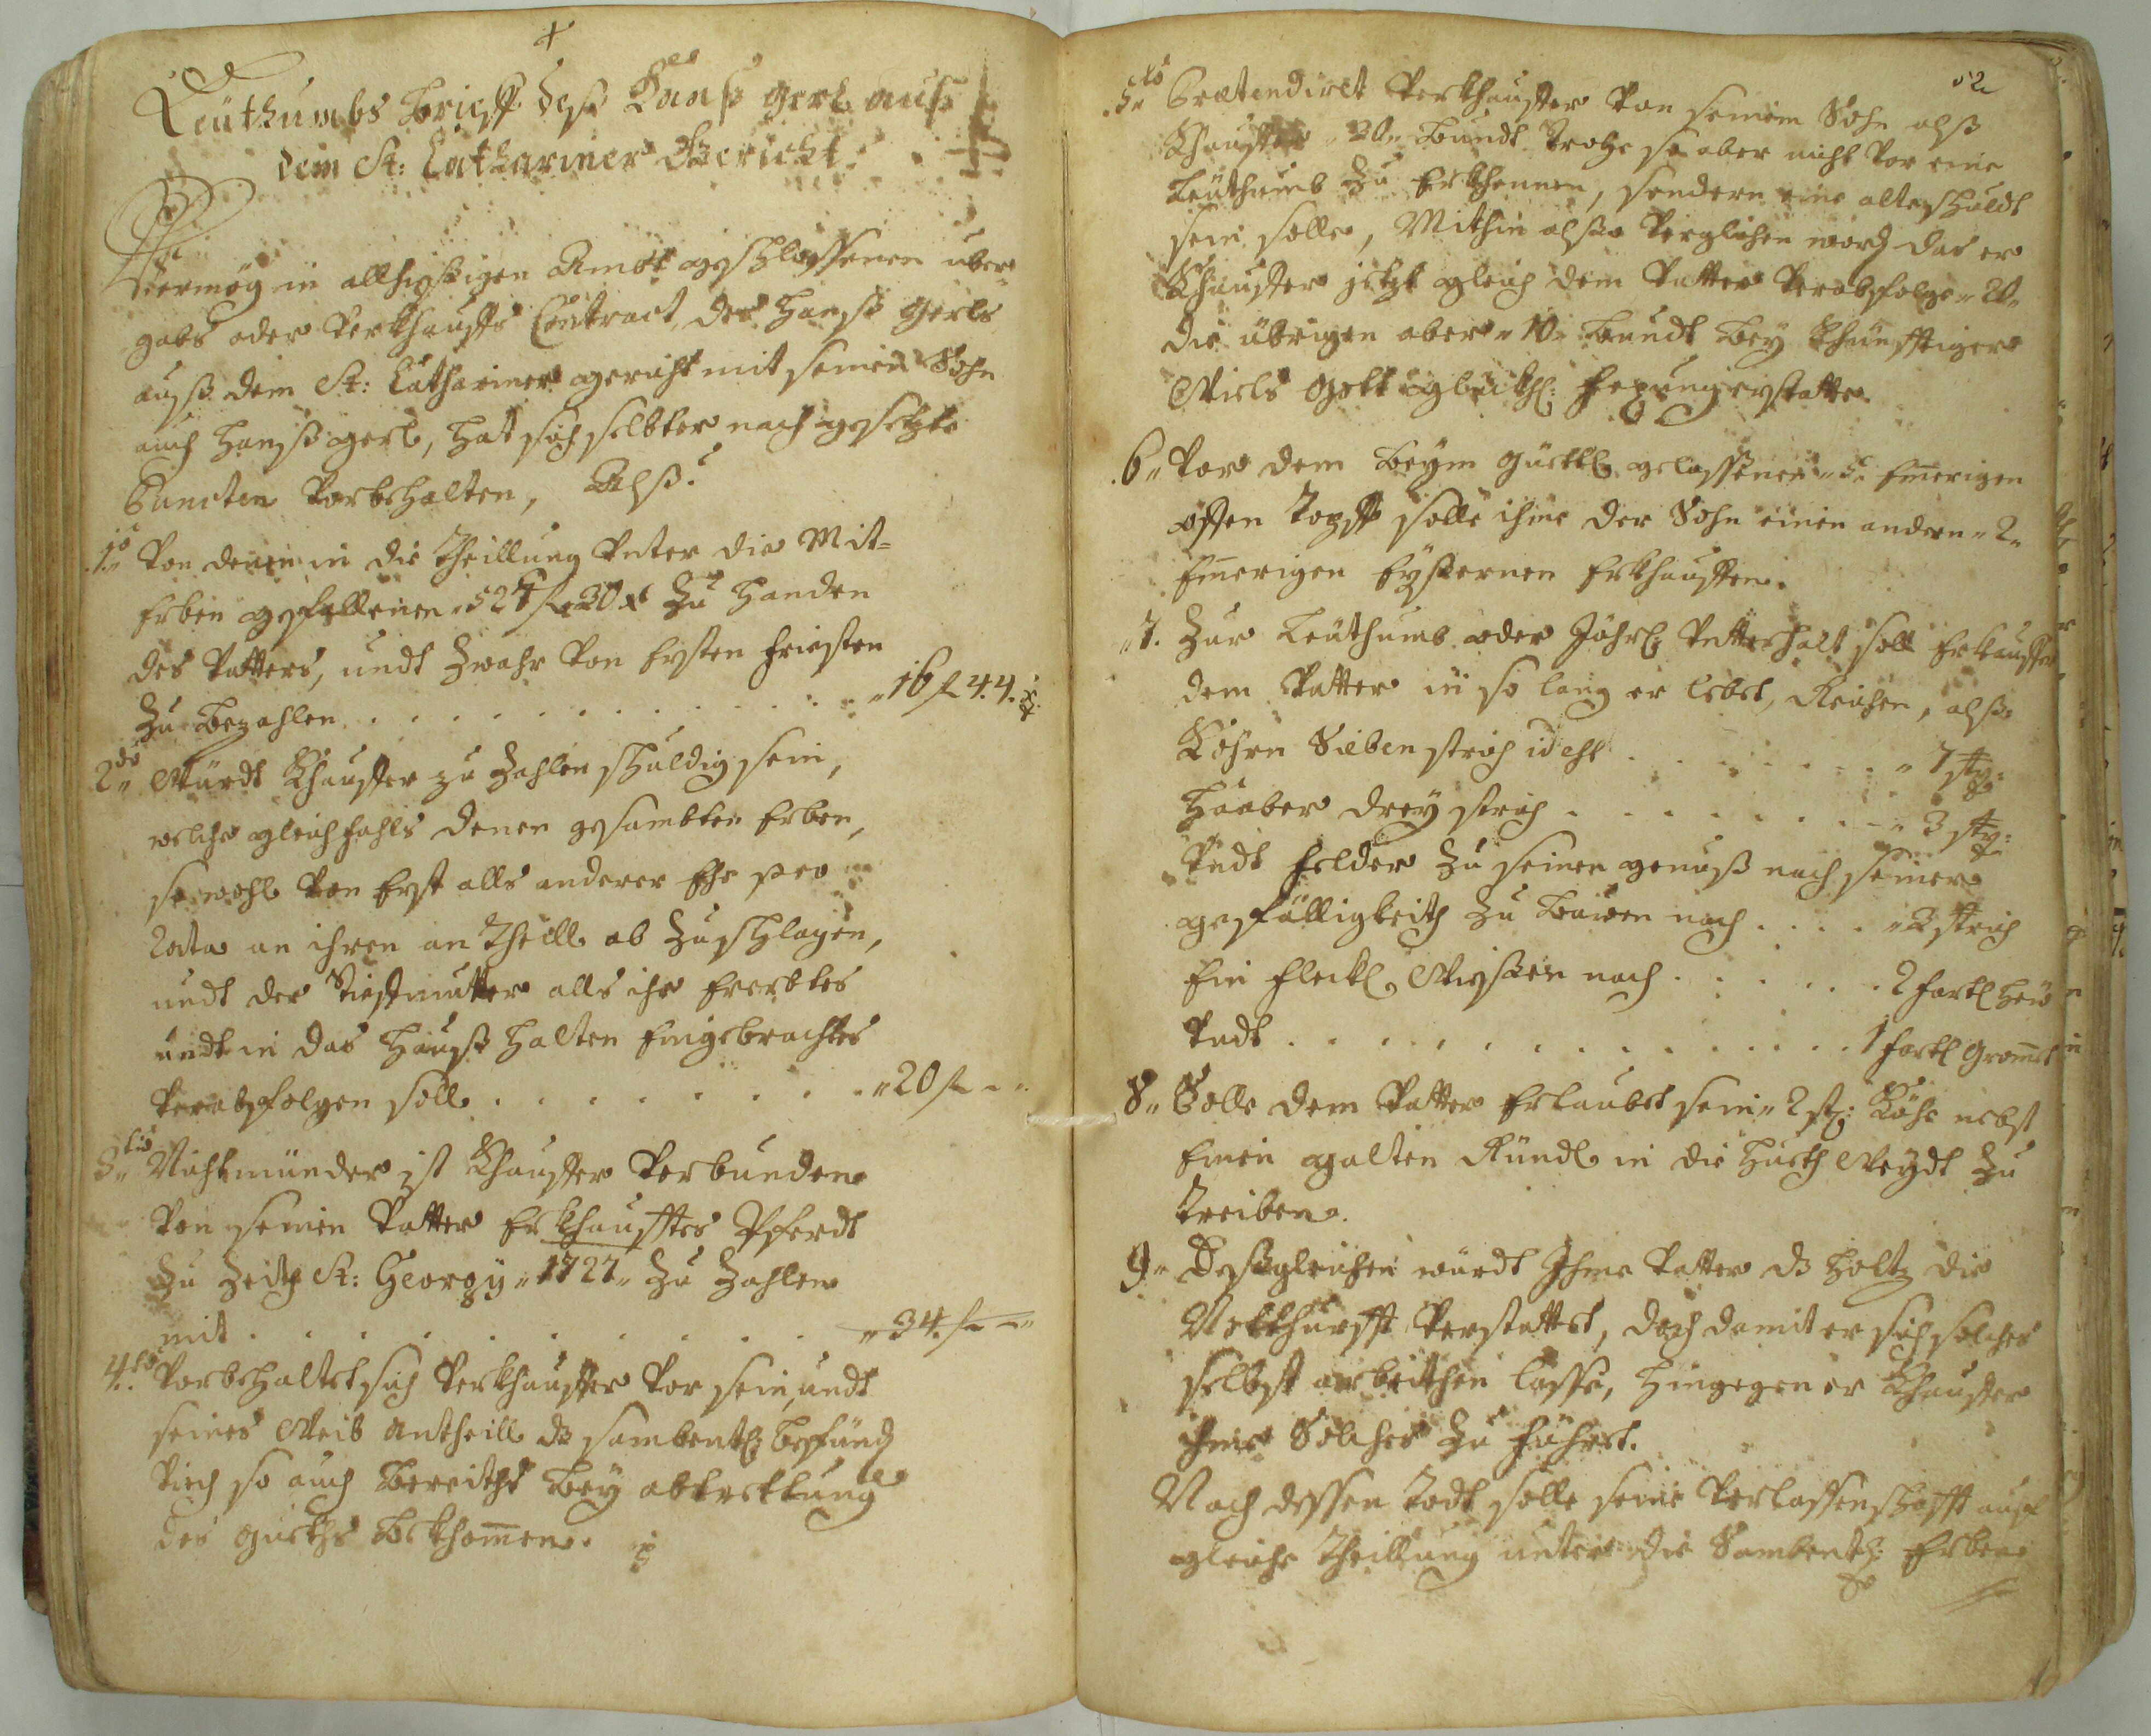 Leüthumbs Brieff deß Hanß Gerl auß
dem St: Cathariner Gericht
Vermög in allhießigen Ambt geschlossenen uber-
gabs oder Verkhauffs Contract, des Hanß Gerls
auß dem St: Cathariner gericht mit seinen Sohn
auch Hanß gerl, hat sich selbter nach gesetzte
Puncten Vorbehalten, Alß:
1mo Von denen in die Theillung Unter die Mit-
Erben gefallenen 527 f 30 x zu Handen
des Vatters, undt Zwahr Von Ersten Fristen
zu bezahlen . . . 16 f 44 x
2do Würdt Khauffer zu Zahlen schuldig sein,
welche gleichfahls denen gesambten Erben,
so wohl Von Erst alls anderer Ehe pro
Rata an ihren an Theill ab zuschlagen,
undt der Stieffmutter alls ihr Ererbtes
undt in das Hauß halten Eingebrachtes
Verabfolgen soll . . . 20 f –
3tio Nichtmünder ist Khauffer Verbunden
Von seinen Vatter Erkhaufftes Pferdt
zu Zeith St: Georgy 1727 zu Zahlen
mit . . . 34 f –
4to Vorbehaltet sich Verkhauffer Vor sein, undt
seines Weib Antheill dz sambentl: befündl
Viech so auch bereiths bey abtrettung
des gueths bekhom̄en.
52
5to Praetendiret Verkhauffer Von seinem Sohn alß
Khauffer 30 bundt Strohe so aber nicht Vor eine
Leüthumb zu Erkhennen, sondern eine alte schuldt
sein solle, Mithin alßo Verglichen word das er
Khauffer jetzt gleich dem Vatter Verabfolge 20
die übrigen aber 10 bundt bey Khünfftiger
Wiels Gott glückl: Fexung erstatte.
6 Vor dem beym güettl gelassenen 5 Em̄erigen
offen Topff solle ihme der Sohn einen andern 2
Em̄erigen Eyßernen Erkhauffen.
7. Zur Leüthumb oder Jährl Unterhalt soll Erkauffer
dem Vatter in so lang er lebet, Reichen, alß
Kohrn Sieben strich id est . . . 7 str:
Haaber drey strich . . . 3 str:
Undt Felder zu seinen genuß nach seiner
gefälligkeith zu bauen nach . . . 3 strich
Ein Fleckl Wießen nach . . . 2 Fartl Heü
Undt . . . 1 Fartl Grom̄et
8 Solle dem Vatter Erlaubet sein 2 st: Kühe nebst
Einen galten Ründl in die Hueth Weydt zu
Treiben.
9 Deßgleichen würdt Ihme Vatter dz Holtz die
Notthurfft Verstattet, doch damit er sich solches
selbst arbeithen lasse, hingegen er Khauffer
ihme Solches zu führet.
Nach dessen Todt solle seine Verlassenschafft auf
gleiche Theillung unter die Sambentl: Erben